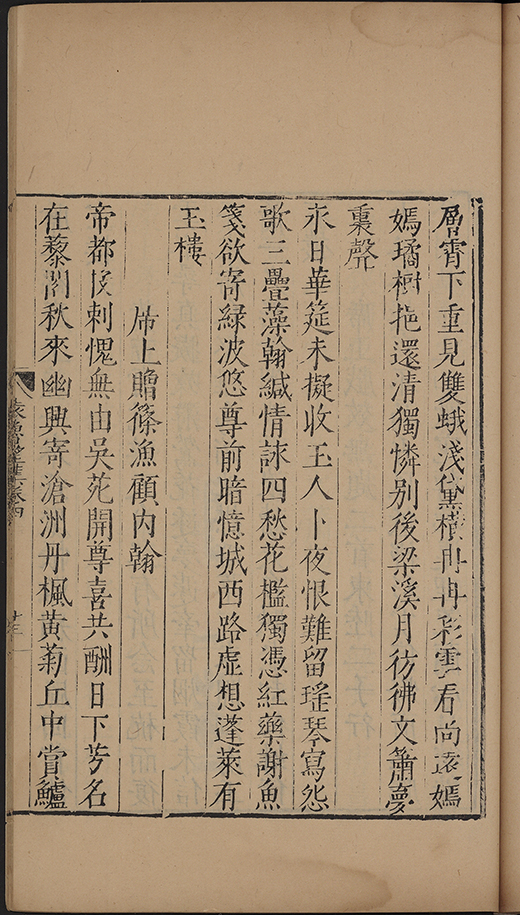 層霄下重見雙蛾淺黛橫冉冉彩雲看尚遠嫣
嫣璚樹挹還清獨憐別後梁溪月彷彿文簫夢
裏聲
永日華筵未擬收玉人卜夜恨難留瑤琴寫怨
歌三疊藻翰緘情詠四愁花檻獨憑紅藥謝魚
箋欲寄綠波悠尊前暗憶城西路虛想蓬萊有
玉樓
席上贈篠漁顧內翰
帝都投刺愧無由吳苑開尊喜共酬日下芳名
在藜閣秋來幽興寄滄洲丹楓黃菊丘中賞鱸